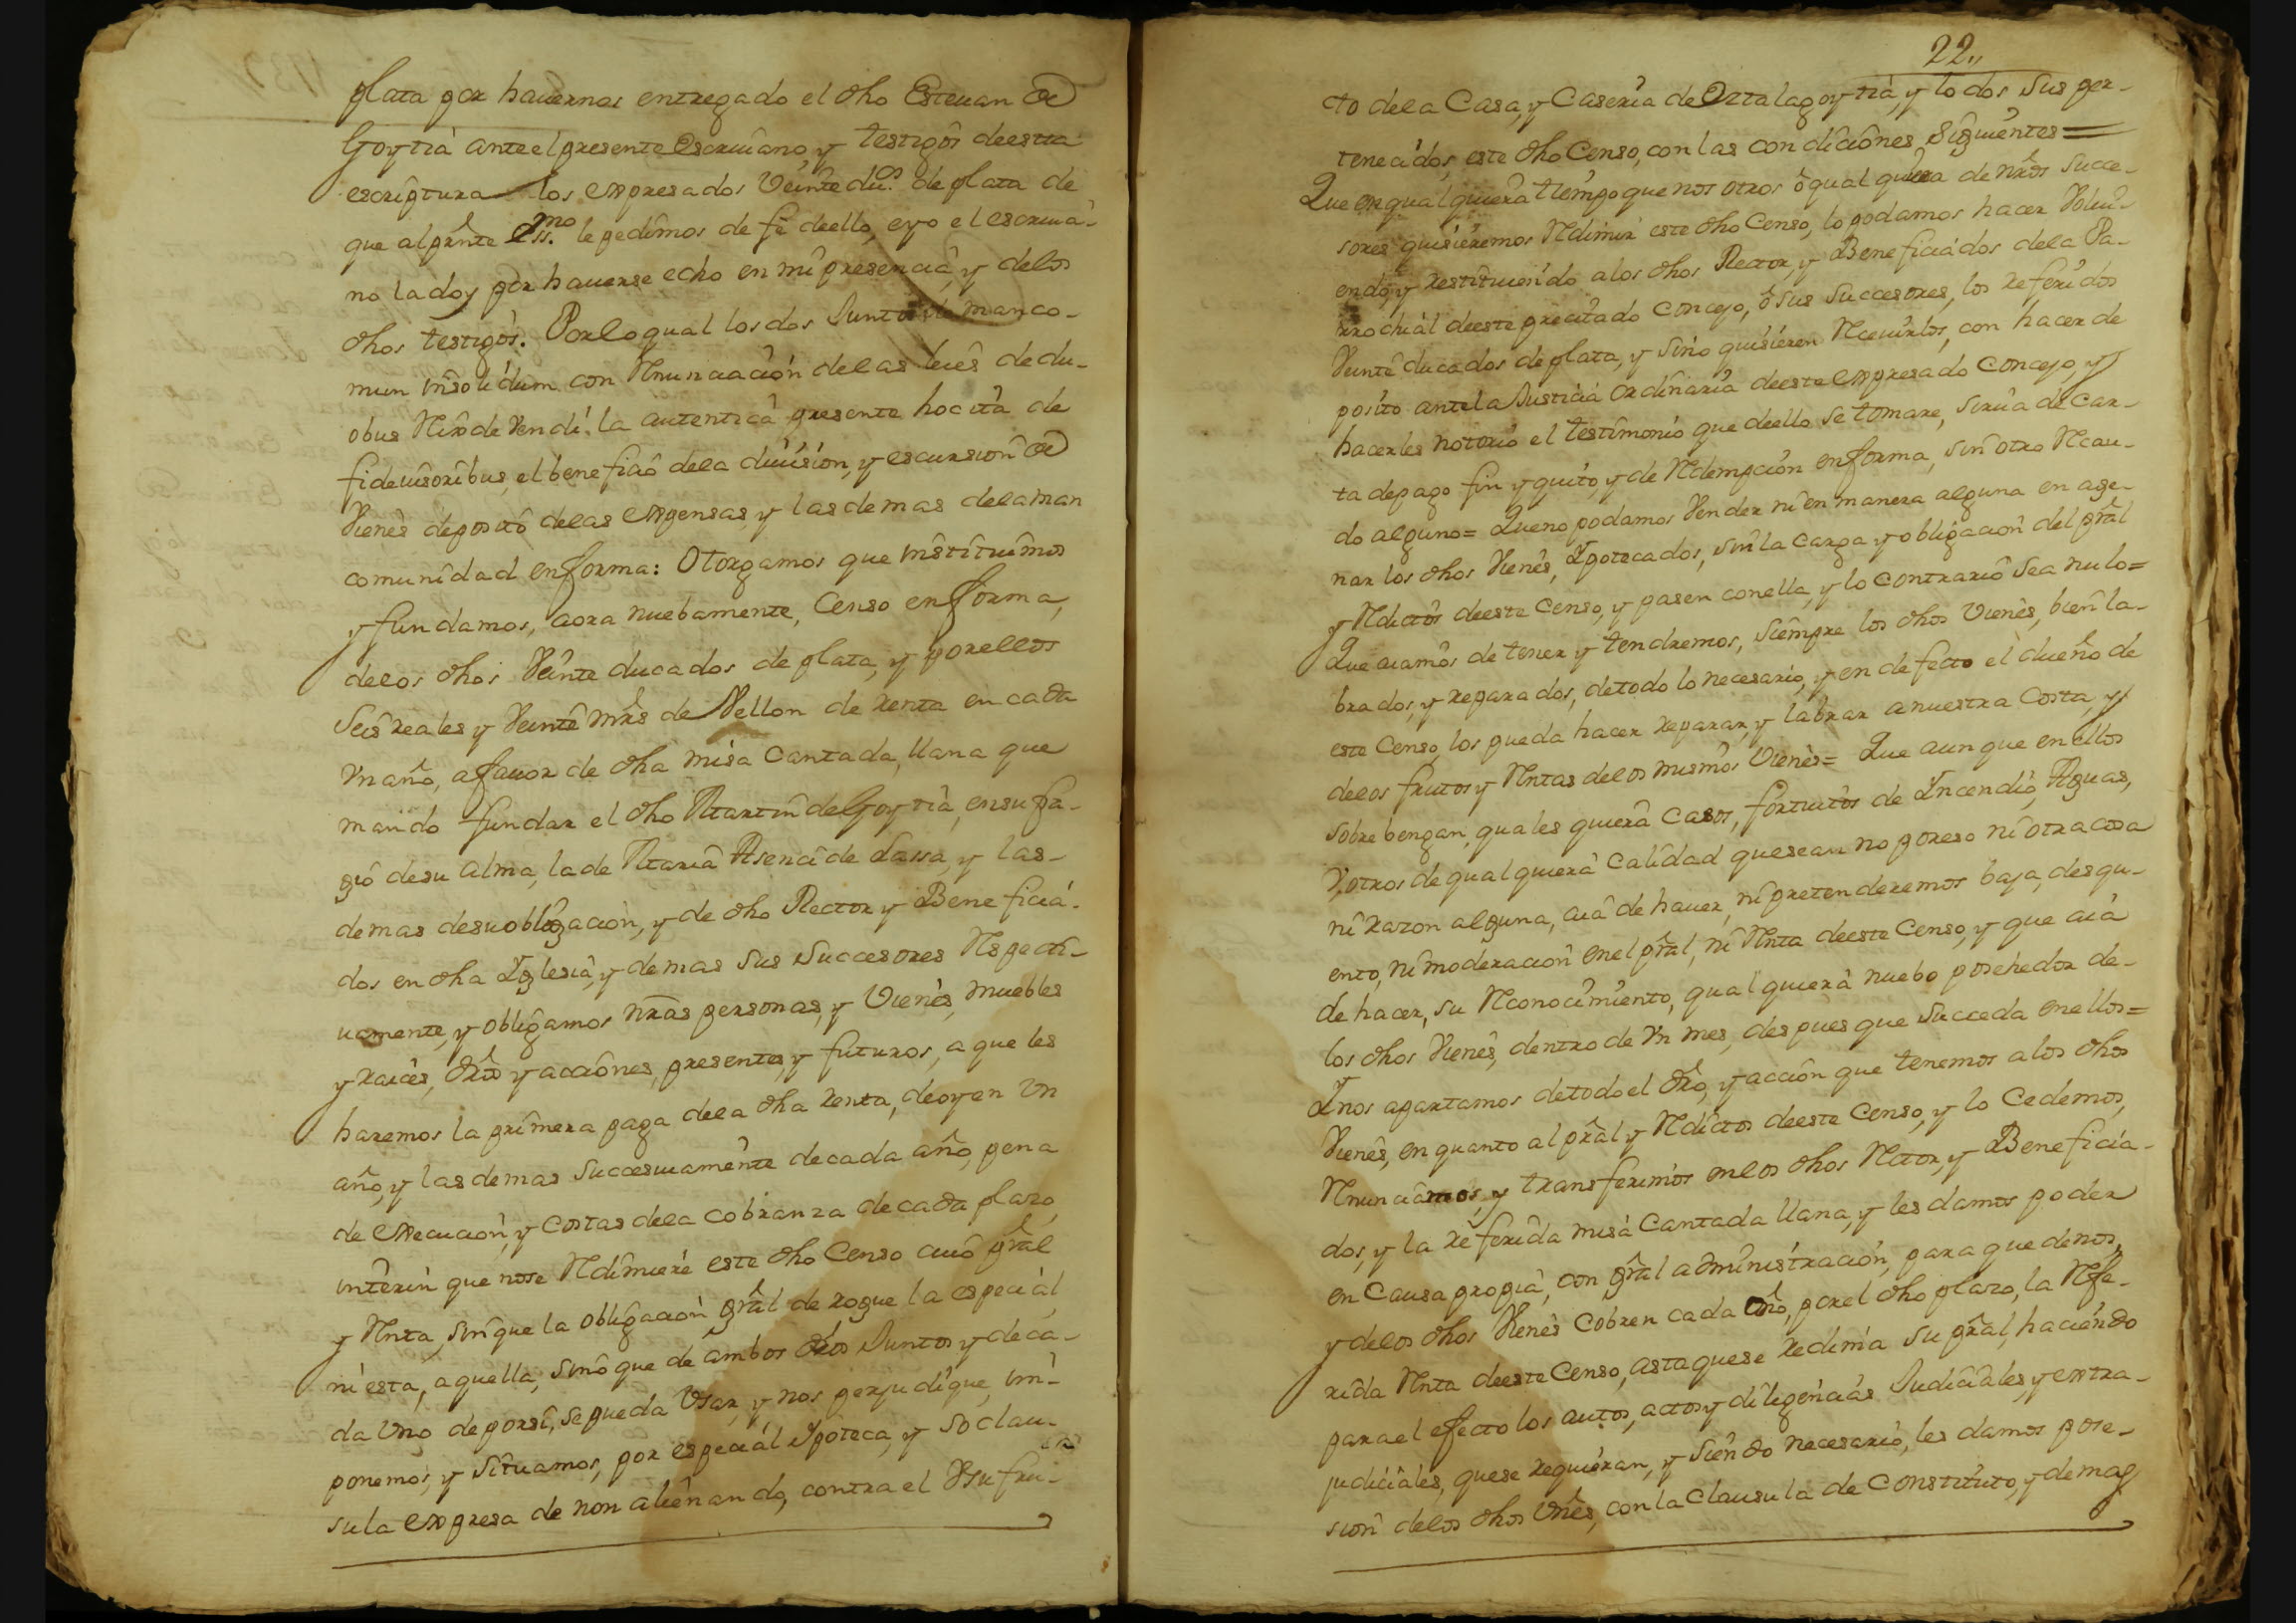 plata por hauernos entregado el dho Esteuan de
Goytia ante el presente escriuano, y testigos de esta
escriptura los expresados Veinte duos. de plata de
que al prnte Essno. le pedimos de fe de ello, e yo el escriua-
no la doy por hauerse echo en mi presencia, y de los
dhos testigos. Por lo qual los dos Juntos de manco-
mun insolidum con Rnunciación de las leies de du-
obus Reix de Vendi. la autentica presente hoc ita de
fideiusoribus, el beneficio de la diuision, y escursion de
Vienes deposito de las expensas, y las demas de la man
comunidad en forma: Otorgamos que instituimos
y fundamos, aora nuebamente, Censo en forma,
de los dhos Veinte ducados de plata, y por ellos
Seis reales y Veinte mrs de Vellon de renta en cada
Vn año, a fauor de dha misa Cantada, llana que
mando fundar el dho Martin de Goytia, en sufra-
gio de su alma, la de Maria Asenci de Lassa, y las
demas de su obligación, y de dho Rector y Beneficia-
dos en dha Yglesia, y demas sus Successores Respecti-
uamente, y obligamos nras personas, y Vienes, muebles
y raices, dros y acciones, presentes, y futuros, a que les
haremos la primera paga de la dha renta, de oy en Vn
año, y las demas Successiuamente de cada año, pena
de execución, y Costas de la cobranza de cada plazo,
interin que no se Rdimiere este dho Censo cuio pral
y Rnta, sin que la obligación gral derogue la especial,
ni esta, aquella, sino que de ambos dros Juntos y de ca-
da Vno de por si, se pueda Vsar, y nos perjudique, im-
ponemos, y Situamos, por especial Ypoteca, y so clau-
sula expresa de non alienando, contra el Vsufru-
22,,
cto de la Casa, y Caseria de Oztalagoytia, y todos sus per-
tenecidos, este dho Censo, con las condiciones Siguientes =
Que en qualquiera tiempo que nosotros ô qualquiera de nros succe-
sores quisieremos Rdimir este dho Censo, lo podamos hacer Volui-
endo, y restituiendo a los dhos Rector, y Beneficiados de la Pa-
rrochial de este precitado Concejo, ô sus Successores, los referidos
Veinte ducados de plata, y sino quisieren Rceuirlos, con hacer de
posito ante la Justicia Ordinaria de este expresado Concejo, y
hacerles notorio el testimonio que de ello se tomare, sirua de Car-
ta de pago fin y quito, y de Rdempcion en forma, sin otro Rcau-
do alguno = Que no podamos Vender ni en manera alguna en age-
nar los dhos Vienes, Ypotecados, sin la Carga y obligacion del pral
y Rditos de este Censo, y pasen con ella, y lo Contrario sea nulo =
Que aiamos de tener y tendremos, Siempre los dhos Vienes, bien la-
brados, y reparados, de todo lo necesario, y en defecto el dueño de
este Censo, los pueda hacer reparar, y labrar a nuestra Costa, y
de los frutos y Rntas de los mismos Vienes = Que aunque en ellos
sobrebengan, quales quiera Casos, fortuitos de Yncendio, Aguas,
V, otros de qualquiera Calidad que sean no por eso ni otra cosa
ni razon alguna, aia de hauer, ni pretenderemos baja, desqu-
ento, ni moderacion en el pral, ni Rnta de este Censo, y que aia
de hacer, su Rconocimiento, qualquiera nuebo posehedor de
los dhos Vienes, dentro de Vn mes, despues que Succeda en ellos =
Y nos apartamos de todo el dro, y acción que tenemos a los dhos
Vienes, en quanto al pral y Rditos de este Censo, y lo Cedemos,
Rnunciamos, y transferimos en los dhos Rctor, y Beneficia-
dos, y la referida misa Cantada llana, y les damos poder
en Causa propia, con gral administración, para que de nos,
y de los dhos Vienes Cobren cada año, por el dho plazo, la Rfe-
rida Rnta de este Censo, asta que se redima su pral, haciendo
para el efecto los autos, actos y diligencias Judiciales, y extra-
judiciales, que se requieran, y siendo necesario, les damos pose-
sion de los dhos Vnes, con la Clausula de Constituto, y demas